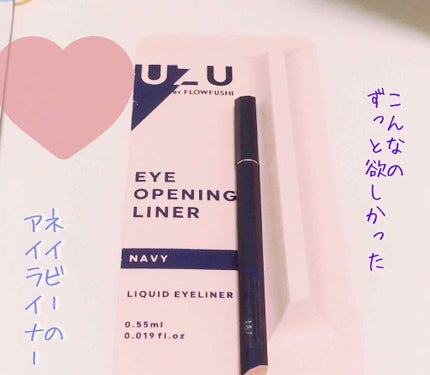 UZU
BY FLOWFUSHI
EYE
OPENING
LINER
NAVY
LIQUID EYELINER
0.55ml
0.019 fl.oz
こんなの
ずっと欲しかった
ネイビーの
アイライナー